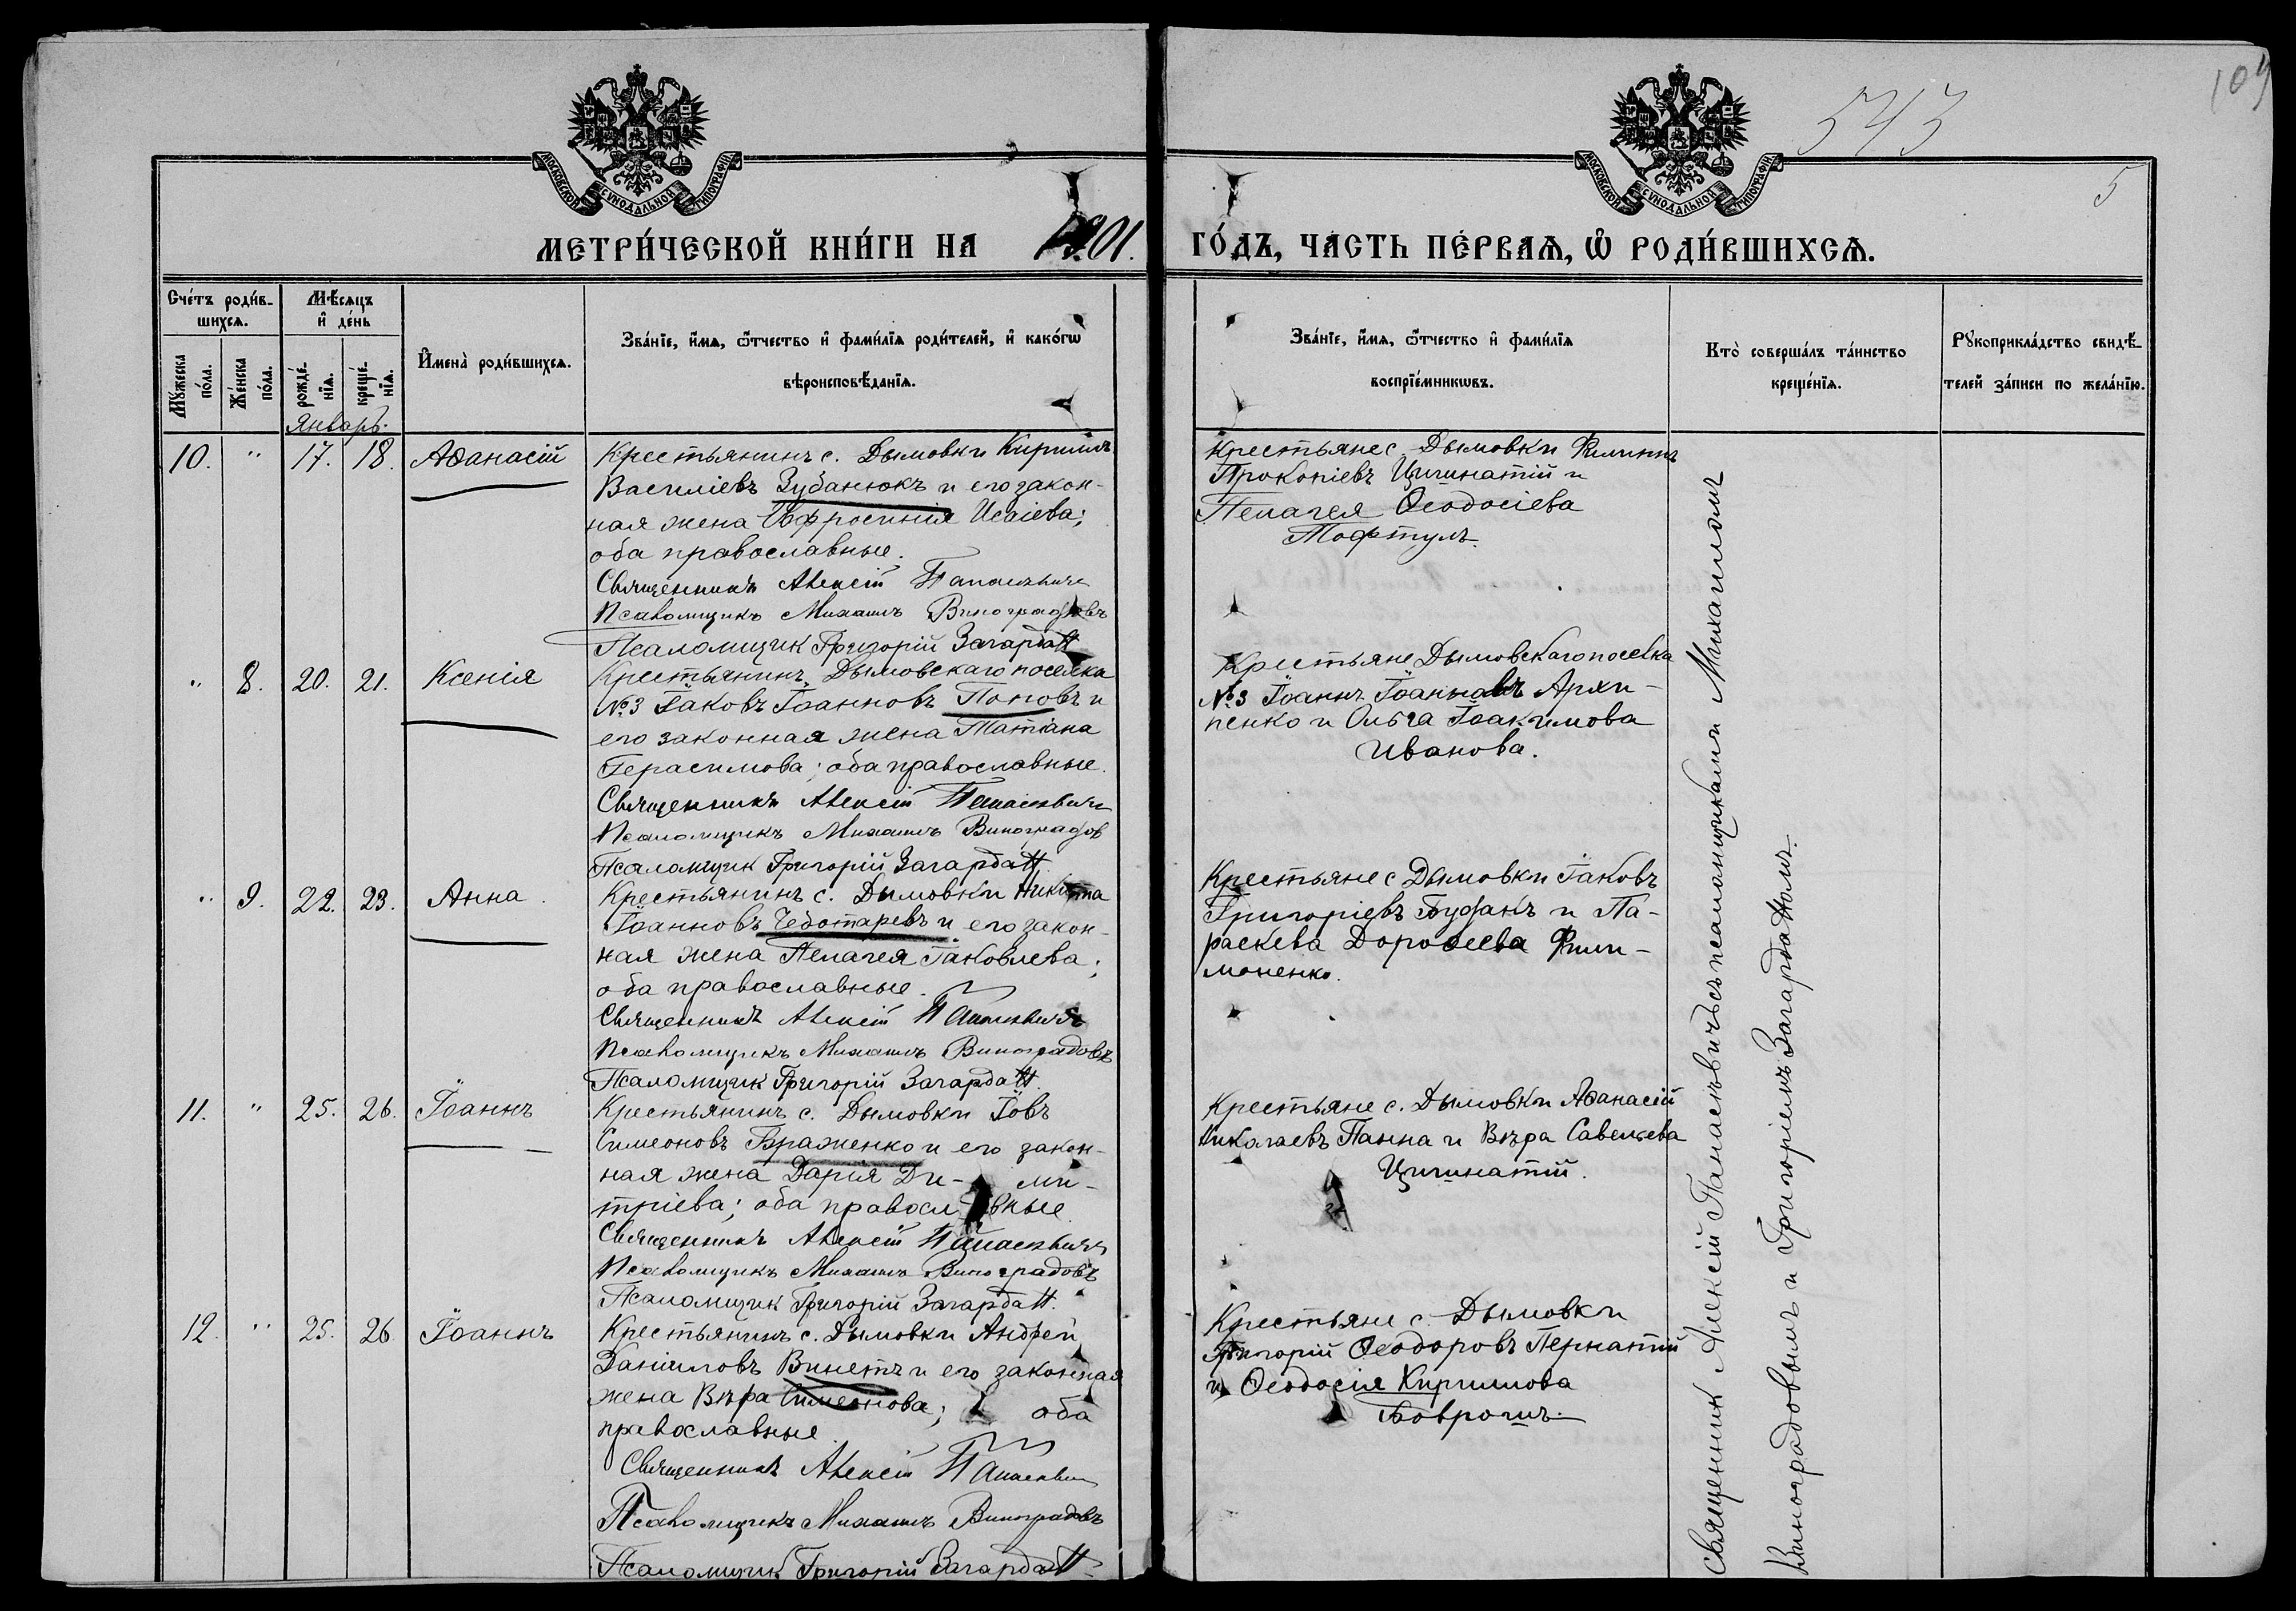 109
543
5
МОСКОВСКОЙ СѴНОДАЛЬНОЙ ТИПОГРАФІИ
МОСКОВСКОЙ СѴНОДАЛЬНОЙ ТИПОГРАФІИ
МЕТРИ́ЧЕСКОЙ КНИ́ГИ НА 1901.
ГО́ДЪ, ЧА́СТЬ ПЕ́РВАѦ, Ѡ҆ РОДИ́ВШИХСѦ.
Сче́тъ роди́в-
шихсѧ.
Мꙋ́жеска
по́ла.
Же́нска
по́ла.
Мѣ́сѧцъ
и҆ де́нь
рожде́-
нїѧ.
креще́-
нїѧ.
И҆мена̀ роди́вшихсѧ.
Зва́нїе, и҆́мѧ, ѻ҆́тчество и҆ фами́лїѧ роди́телей, и҆ како́гѡ
вѣроисповѣ́данїѧ.
Зва́нїе, и҆́мѧ, ѻ҆́тчество и҆ фами́лїѧ
воспрїе́мникѡвъ.
Кто̀ соверша́лъ та́инство
креще́нїѧ.
Рꙋкоприкла́дство свидѣ́-
телей за́писи по жела́нїю.
Январь.
10. " 17. 18. Аѳанасій
Крестьянинъ с. Дымовки Кириллъ
Василіевъ Зубанюкъ и его закон-
ная жена Евфросинія Исаіева;
оба православные.
Священникъ Алексій Панасевичъ
Псаломщикъ Михаилъ Виноградовъ
Псаломщик Григорій Загардан
Крестьяне с. Дымовки Филиппъ
Прокопіевъ Цигинатій и
Пелагея Ѳеодосіева
Тофтулъ.
" 8. 20. 21. Ксенія
Крестьянинъ Дымовскаго поселка
№3 Іаковъ Іоанновъ Поповъ и
его законная жена Татіана
Герасимова; оба православные.
Священникъ Алексій Панасевичъ
Псаломщикъ Михаилъ Виноградов
Псаломщик Григорій Загардан
Крестьяне Дымовскаго поселка
№3 Іоаннъ Іоанновъ Архи-
пенко и Ольга Іоакимова
Иванова.
" 9. 22. 23. Анна.
Крестьянинъ с. Дымовки Никита
Іоанновъ Чеботаревъ и его закон-
ная жена Пелагея Іаковлева;
оба православные.
Священникъ Алексій Панасевичъ
Псаломщикъ Михаилъ Виноградовъ
Псаломщик Григорій Загардан.
Крестьяне с Дымовки Іаковъ
Григоріевъ Буданъ и Па-
раскева Дороѳеева Фили-
моненко.
11. " 25. 26. Іоаннъ
Крестьянинъ с. Дымовки Іовъ
Симеоновъ Браженко и его закон-
ная жена Дарія Ди- ми-
тріева; оба правосл вные
Священникъ Алексій Панасевичъ
Псаломщикъ Михаилъ Виноградовъ
Псаломщик Григорій Загардан.
Крестьяне с. Дымовки Аѳанасій
Николаевъ Панна и Вѣра Савельева
Цигинатій.
12. " 25. 26. Іоаннъ
Крестьянинъ с. Дымовки Андрей
Даніиловъ Винетъ и его законная
жена Вѣра Симеонова; оба
православные.
Священникъ Алексій Панасевич
Псаломщикъ Михаилъ Виноградовъ
Псаломщик Григорій Загардан
Крестьяне с. Дымовки
Григорій Ѳеодоровъ Пернатій
и Ѳеодосія Кириллова
Священник Алексій Панасевичъ съ псаломщиками Михаиломъ
Виноградовымъ и Григоріемъ Загарданомъ.